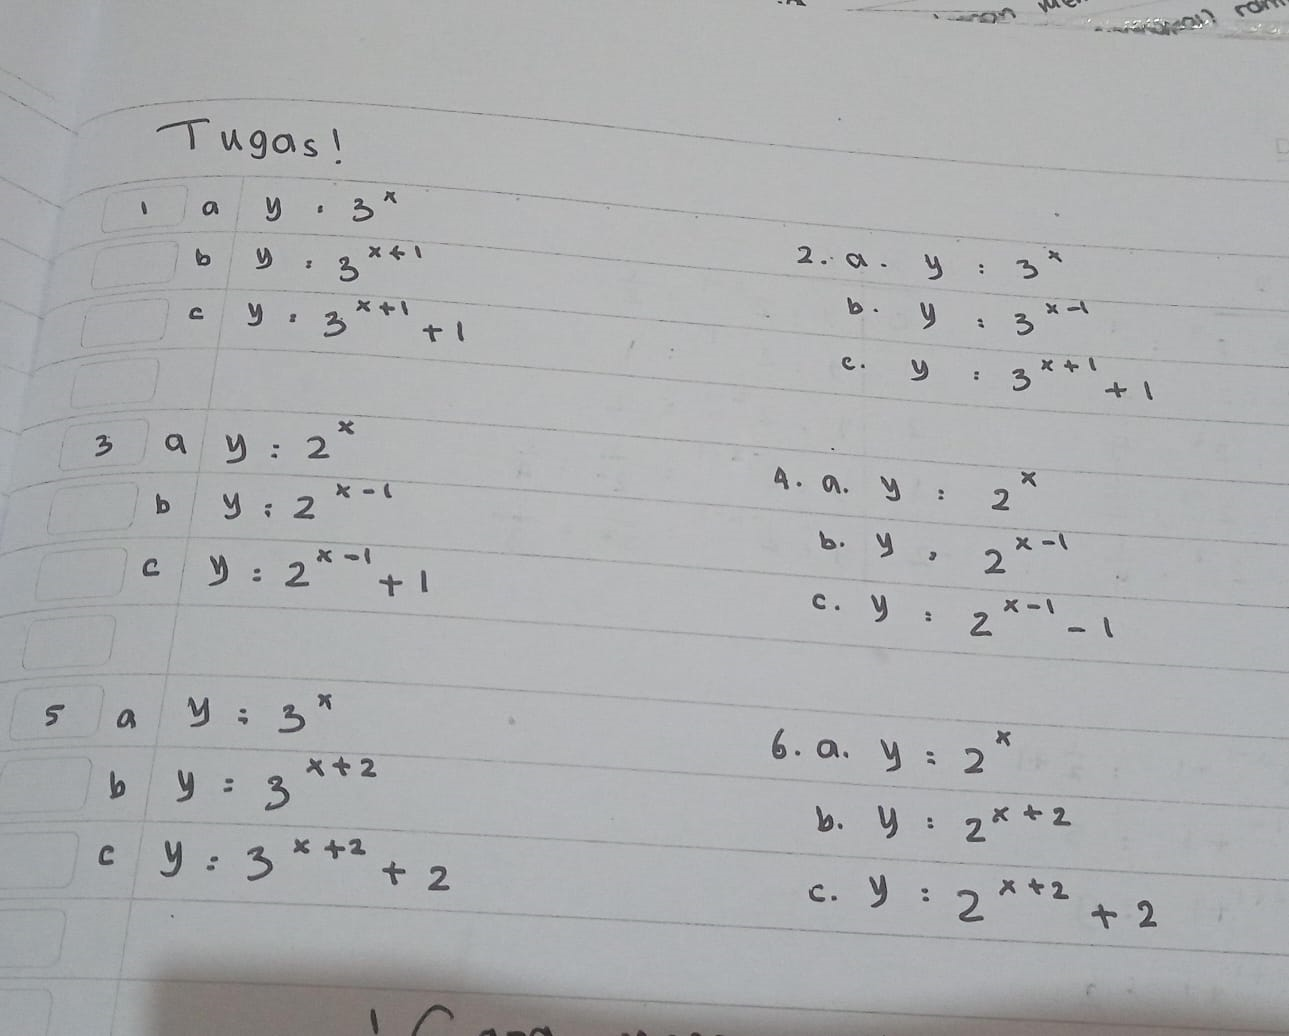 Tugas!
1 a y = 3^x
b y = 3^{x+1}
c y = 3^{x+1} + 1
2. a. y = 3^x
b. y = 3^{x-1}
c. y = 3^{x+1} + 1
3 a y = 2^x
b y = 2^{x-1}
c y = 2^{x-1} + 1
4. a. y = 2^x
b. y = 2^{x-1}
c. y = 2^{x-1} - 1
5 a y = 3^x
b y = 3^{x+2}
c y = 3^{x+2} + 2
6. a. y = 2^x
b. y = 2^{x+2}
c. y = 2^{x+2} + 2